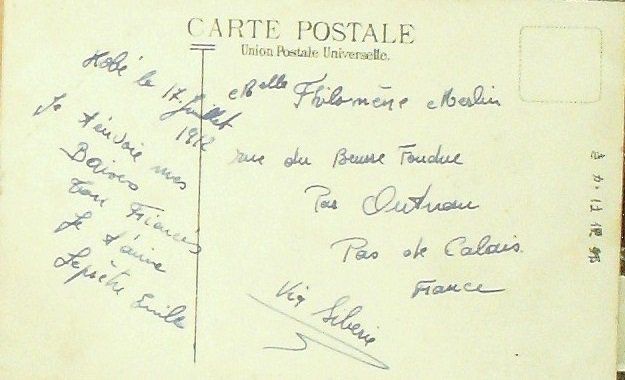 CARTE POSTALE
Union Postale Universelle.
Kobé le 17 Juillet
1912
Je t'envoie mes
Baisers
ton Francis
Je t'aime
Lepretre Emile
Melle Philomène Merlin
rue du Beurre Fondue
Par Outreau
Pas de Calais.
France
Via Siberie
きかは便郵